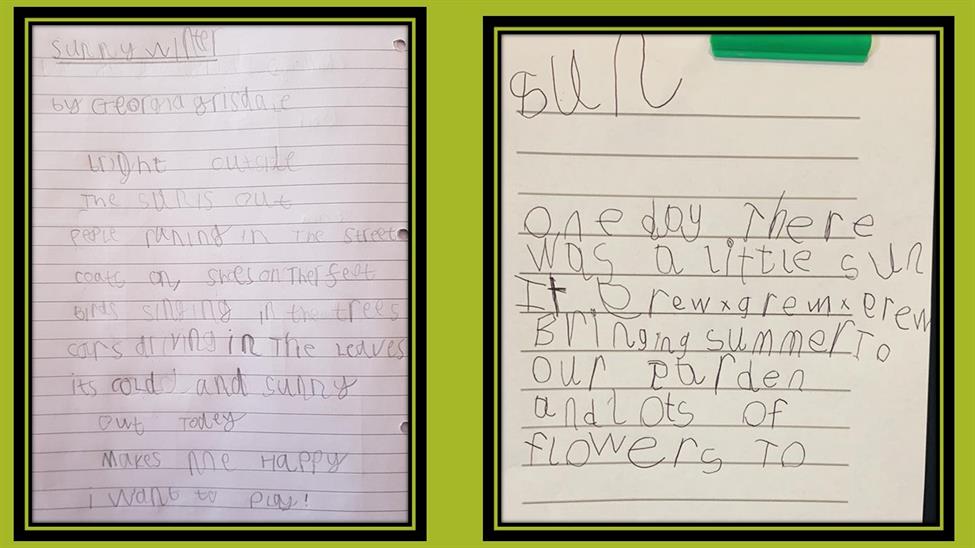 sunny winter
by Georgia grisdale
bright outside
The sun is out
peple runing in The street
coats on, shoes on Ther feet
Birds singing in the trees
cars driving in The Leaves
its cold and sunny
out Today
makes me Happy
i want to play!
sun
one day There
was a little sun
It grew x grew x grew
Bringing summer To
our garden
and lots of
flowers To